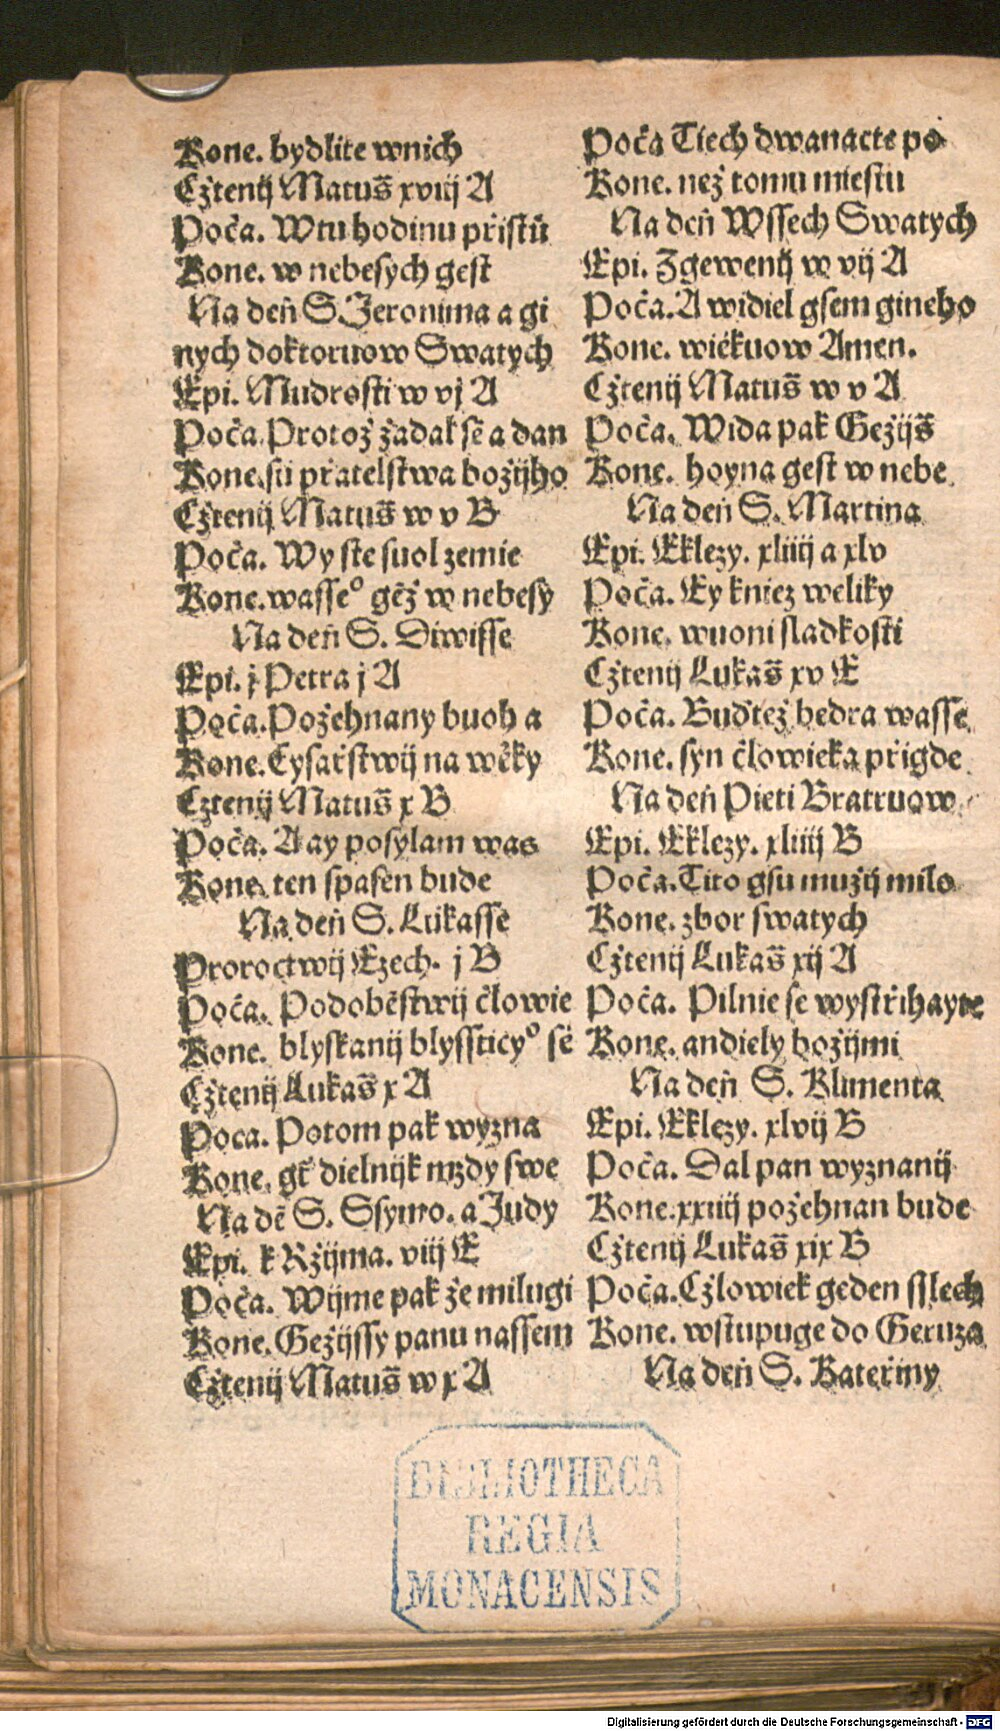 Kone. bydlite wnich
Cžtenij Matuš xviij A
Poča. Wtu hodinu přistú
Kone. w nebesych gest
Na deň S. Jeronima a gi
nych doktoruow Swatych
Epi. Mudrosti w vj A
Poča. Protož žádal sě a dan
Kone. sú přatelstwa božijho
Cžtenij Matuš w v B
Poča. Wy ste suol zemie
Kone. wasseº gěž w nebesy
Na deň S. Diwisse
Epi. j Petra j A
Poča. Požehnany buoh a
Kone. Cysařstwij na wěky
Cztenij Matuš x B
Poča. A ay posylam was
Kone. ten spasen bude
Na deň S. Lukasse
Proroctwij Ezech. j B
Poča. Podoběstwij člowie
Kone. blyskanij blyssticyº sě
Cžtenij Lukaš x A
Poca. Potom pak wyzna
Kone. gť dielnijk mzdy swe
Na dē S. Ssymo. a Judy
Epi. k Ržijma. viij E
Poča. Wijme pak že milugi
Kone. Gežijssy panu nassem
Cžtenij Matuš w x A
Poča Tiech dwanacte po
Kone. než tomu miestu
Na deň Wssech Swatych
Epi. Zgewenij w vij A
Poča. A widiel gsem gineho
Kone. wiékuow Amen.
Cžtenij Matuš w v A
Poča. Wida pak Gežijš
Kone. hoyna gest w nebe
Na deň S. Martina
Epi. Eklezy. xliiij a xlv
Poča. Ey kniez weliky
Kone. wuoni sladkosti
Cžtenij Lukaš xv E
Poča. Buďtež bedra wasse
Kone. syn člowieka přigde
Na deň Pieti Bratruow
Epi. Eklezy. xliiij B
Poča. Tito gsu mužij milo
Kone. zbor swatych
Cžtenij Lukaš xij A
Poča. Pilnie se wystřihayte
Kone. andiely božijmi
Na deň S. Klimenta
Epi. Eklezy. xlvij B
Poča. Dal pan wyznanij
Kone. xxiiij požehnan bude
Cžtenij Lukaš xix B
Poča. Cžlowiek geden sslech
Kone. wstupuge do Geruza
Na deň S. Kateřiny
BIBLIOTHECA
REGIA
MONACENSIS
Digitalisierung gefördert durch die Deutsche Forschungsgemeinschaft - DFG